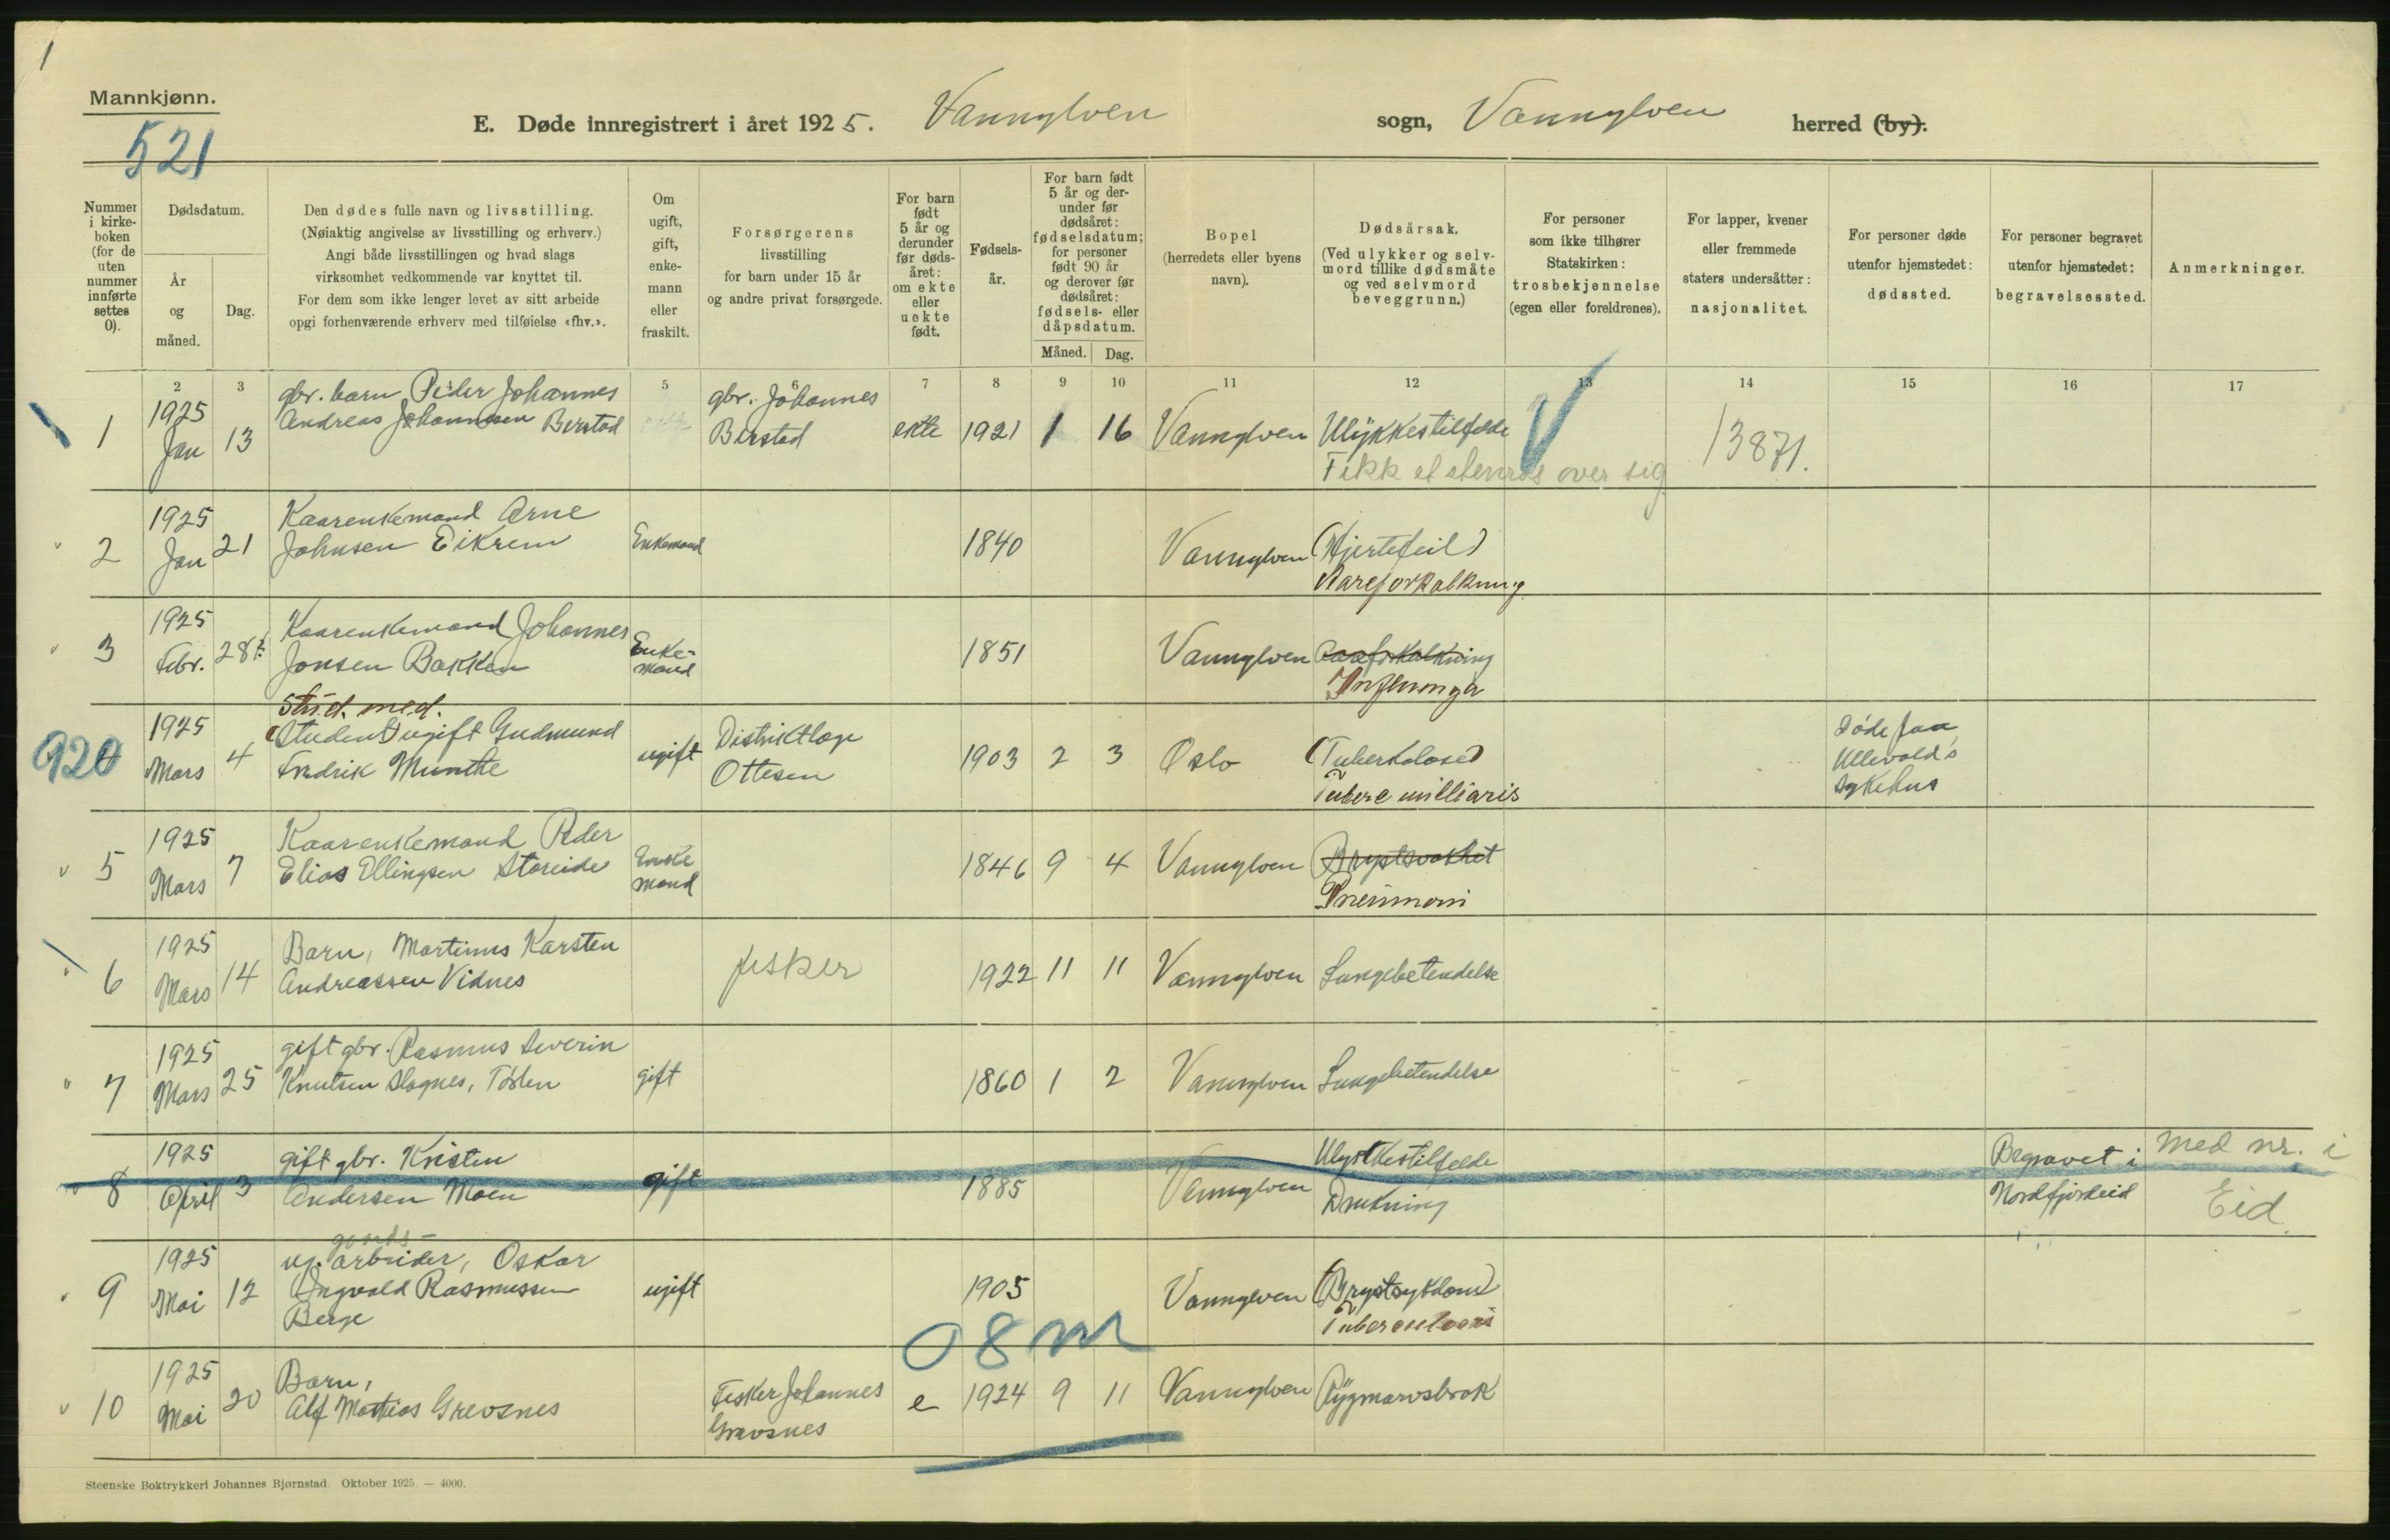 1
Mannkjønn.
521
E. Døde innregistrert i året 1925. Vannylven sogn, Vannylven herred (by).
Nummer i kirkeboken (for de uten nummer innførte settes 0).
Dødsdatum.
År og måned.
Dag.
Den dødes fulle navn og livsstilling.
(Nøiaktig angivelse av livsstilling og erhverv.)
Angi både livsstillingen og hvad slags
virksomhet vedkommende var knyttet til.
For dem som ikke lenger levet av sitt arbeide
opgi forhenværende erhverv med tilføielse «fhv.».
Om ugift, gift, enkemann eller fraskilt.
Forsørgerens
livsstilling
for barn under 15 år
og andre privat forsørgede.
For barn født 5 år og derunder før dødsåret: om ekte eller uekte født.
Fødselsår.
For barn født 5 år og derunder før dødsåret: fødselsdatum; for personer født 90 år og derover før dødsåret: fødsels- eller dåpsdatum.
Måned.
Dag.
Bopel
(herredets eller byens
navn).
Dødsårsak.
(Ved ulykker og selvmord tillike dødsmåte og ved selvmord beveggrunn.)
For personer
som ikke tilhører
Statskirken:
trosbekjennelse
(egen eller foreldrenes).
For lapper, kvener
eller fremmede
staters undersåtter:
nasjonalitet.
For personer døde
utenfor hjemstedet:
dødssted.
For personer begravet
utenfor hjemstedet:
begravelsessted.
Anmerkninger.
2 3 4 5 6 7 8 9 10 11 12 13 14 15 16 17
1 1925 Jan 13 gbr. barn Peder Johannes
Andreas Johannesen Berstad
gbr. Johannes
Berstad
ekte 1921 1 16 Vannylven Ulykkestilfelde
Fikk et stenras over sig
13871.
2 1925 Jan 21 Kaarenkemand Arne
Johnsen Eikrem
Enkemand 1840 Vannylven (Hjertefeil)
Aareforkalkning
3 1925 Febr. 28 Kaarenkemand Johannes
Jonsen Bakken
Enke-
mand
1851 Vannylven Aareforkalkning
Influenza
920
4 1925 Mars 4 Stud. med.
(Student) ugift Gudmund
Fredrik Munthe
ugift Distriktlæge
Ottesen
1903 2 3 Oslo (Tuberkulose)
Tuberc milliaris
Døde paa
Ullevold's
sykehus
5 1925 Mars 7 Kaarenkemand Peder
Elias Ellingsen Storeide
Enke
mand
1846 9 4 Vannylven Brystsvakhet
Pneumoni
6 1925 Mars 14 Barn, Martinus Karsten
Andreassen Vidnes
fisker 1922 11 11 Vannylven Lungebetendelse
7 1925 Mars 25 gift gbr. Rasmus Severin
Knutsen Slagnes,
gift 1860 1 2 Vannylven Lungebetendelse
8 1925 April 3 gift gbr. Kristen
Andersen Moen
gift 1885 Vannylven Ulykkestilfelde
Drukning
Begravet i
Nordfjordeid
Med nr. i
Eid
9 1925 Mai 12 gaards-
ug. arbeider, Oskar
Ingvald Rasmussen
Berge
ugift 1905 Vannylven (Brystsykdom)
Tuberculosis
08 m
10 1925 Mai 20 Barn,
Alf Mathias Grevsnes
Fisker Johannes
Grevsnes
e 1924 9 11 Vannylven Rygmarvsbrok
Steenske Boktrykkeri Johannes Bjørnstad. Oktober 1925. — 4000.